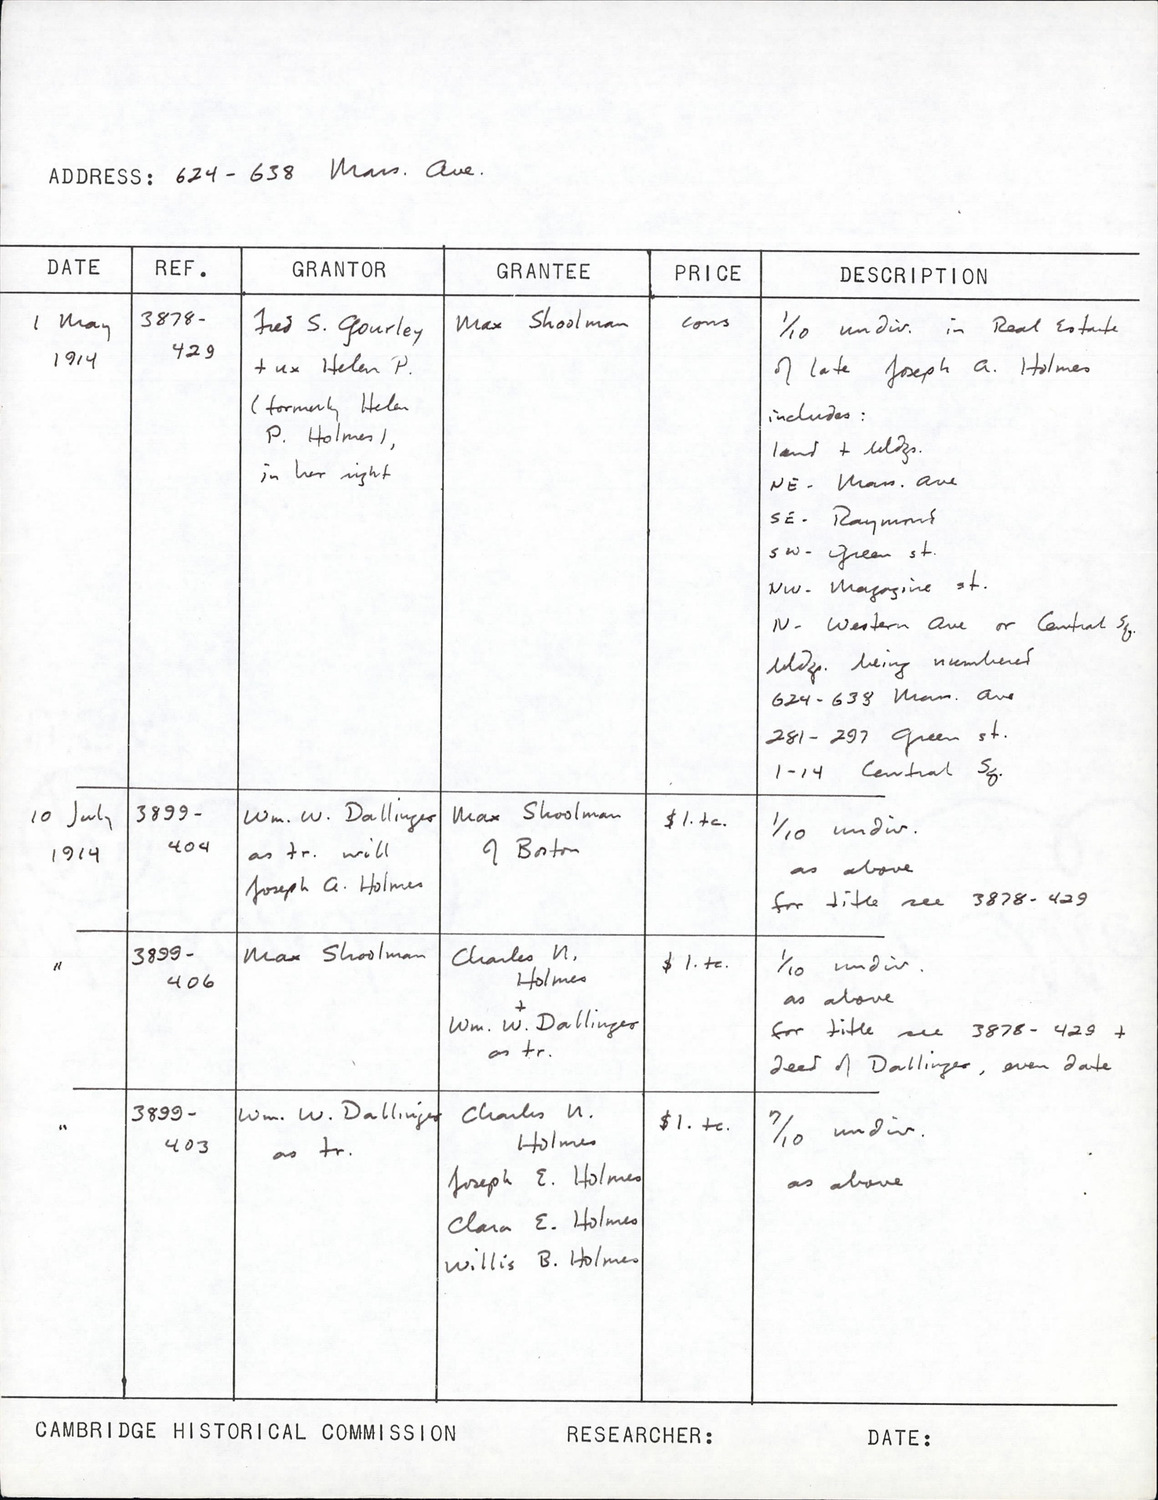 ADDRESS: 624 - 638 Mass. Ave.
DATE REF. GRANTOR GRANTEE PRICE DESCRIPTION
1 May
1914
3878-
429
Fred S. Gourley
+ ux Helen P.
(formerly Helen
P. Holmes),
in her right
Max Shoolman
cons
1/10 undiv. in Real Estate
of late Joseph A. Holmes
includes:
land + bldgs.
NE - Mass. Ave
SE - Raymond
SW - Green st.
NW - Magazine st.
N - Western Ave or Central Sq.
bldgs. being numbered
624-638 Mass. Ave
281-297 Green st.
1-14 Central Sq.
10 July
1914
3899-
404
Wm. W. Dallinger
as tr. will
Joseph A. Holmes
Max Shoolman
of Boston
$1. tc.
1/10 undiv.
as above
for title see 3878-429
"
3899-
406
Max Shoolman
Charles N.
Holmes
+
Wm. W. Dallinger
as tr.
$1. tc.
1/10 undiv.
as above
for title see 3878-429 +
deed of Dallinger, even date
"
3899-
403
Wm. W. Dallinger
as tr.
Charles N.
Holmes
Joseph E. Holmes
Clara E. Holmes
Willis B. Holmes
$1. tc.
7/10 undiv.
as above
CAMBRIDGE HISTORICAL COMMISSION RESEARCHER: DATE: